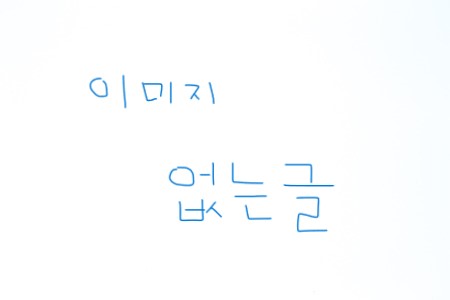 이미지
없는글